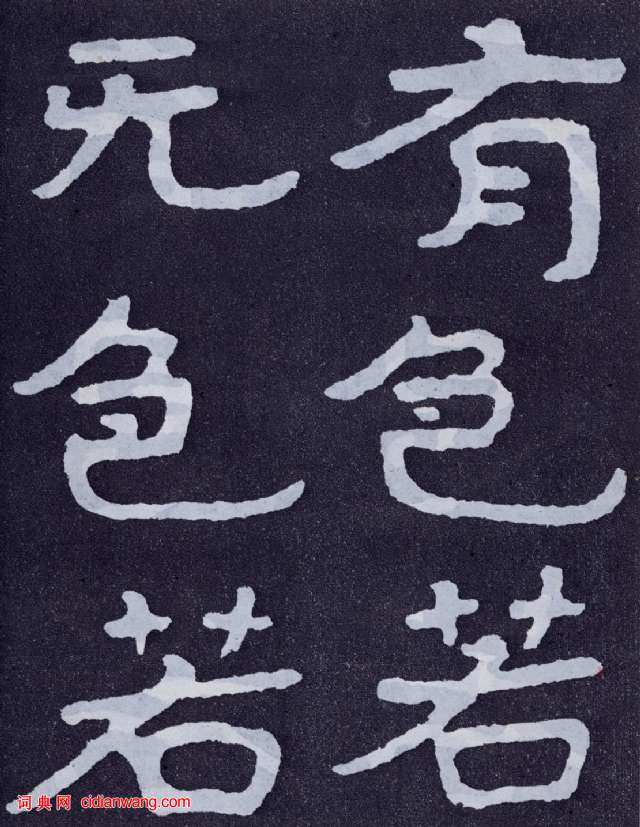 有色若
无色若
词典网 cidianwang.com